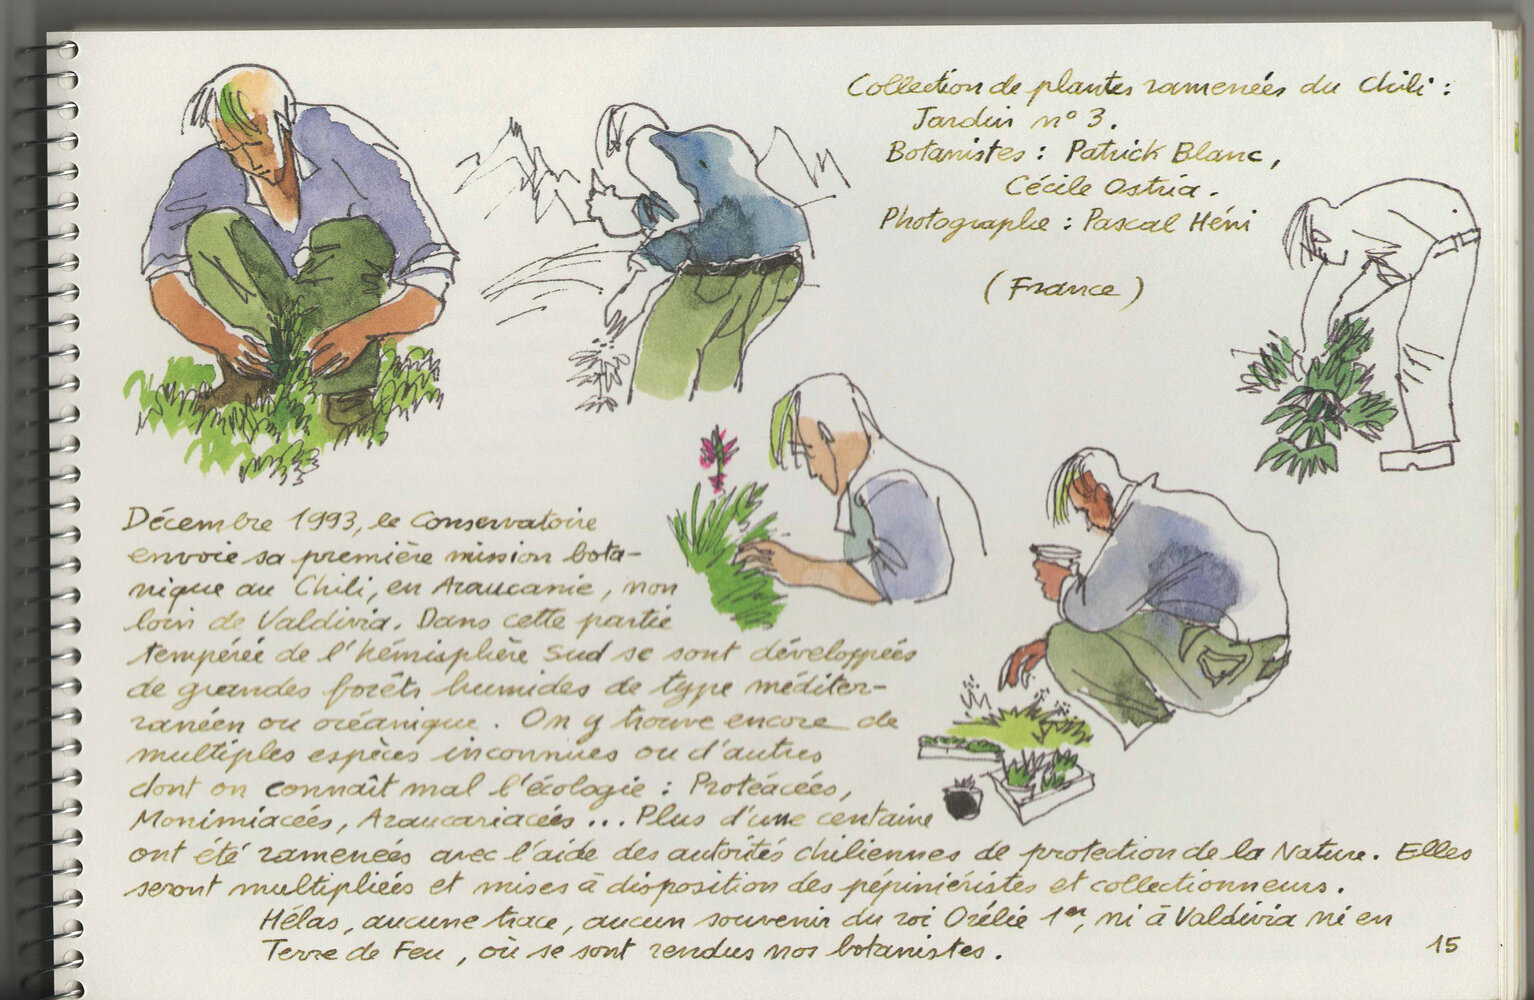 Collection de plantes ramenées du Chili :
Jardin n° 3.
Botanistes : Patrick Blanc,
Cécile Ostria.
Photographe : Pascal Héni
(France)
Décembre 1993, le Conservatoire
envoie sa première mission bota-
nique au Chili, en Araucanie, non
loin de Valdivia. Dans cette partie
tempérée de l'hémisphère Sud se sont développées
de grandes forêts humides de type méditer-
ranéen ou océanique. On y trouve encore de
multiples espèces inconnues ou d'autres
dont on connaît mal l'écologie : Protéacées,
Monimiacées, Araucariacées... Plus d'une centaine
ont été ramenées avec l'aide des autorités chiliennes de protection de la Nature. Elles
seront multipliées et mises à disposition des pépiniéristes et collectionneurs.
Hélas, aucune trace, aucun souvenir du roi Orélie 1er, ni à Valdivia ni en
Terre de Feu, où se sont rendus nos botanistes.
15